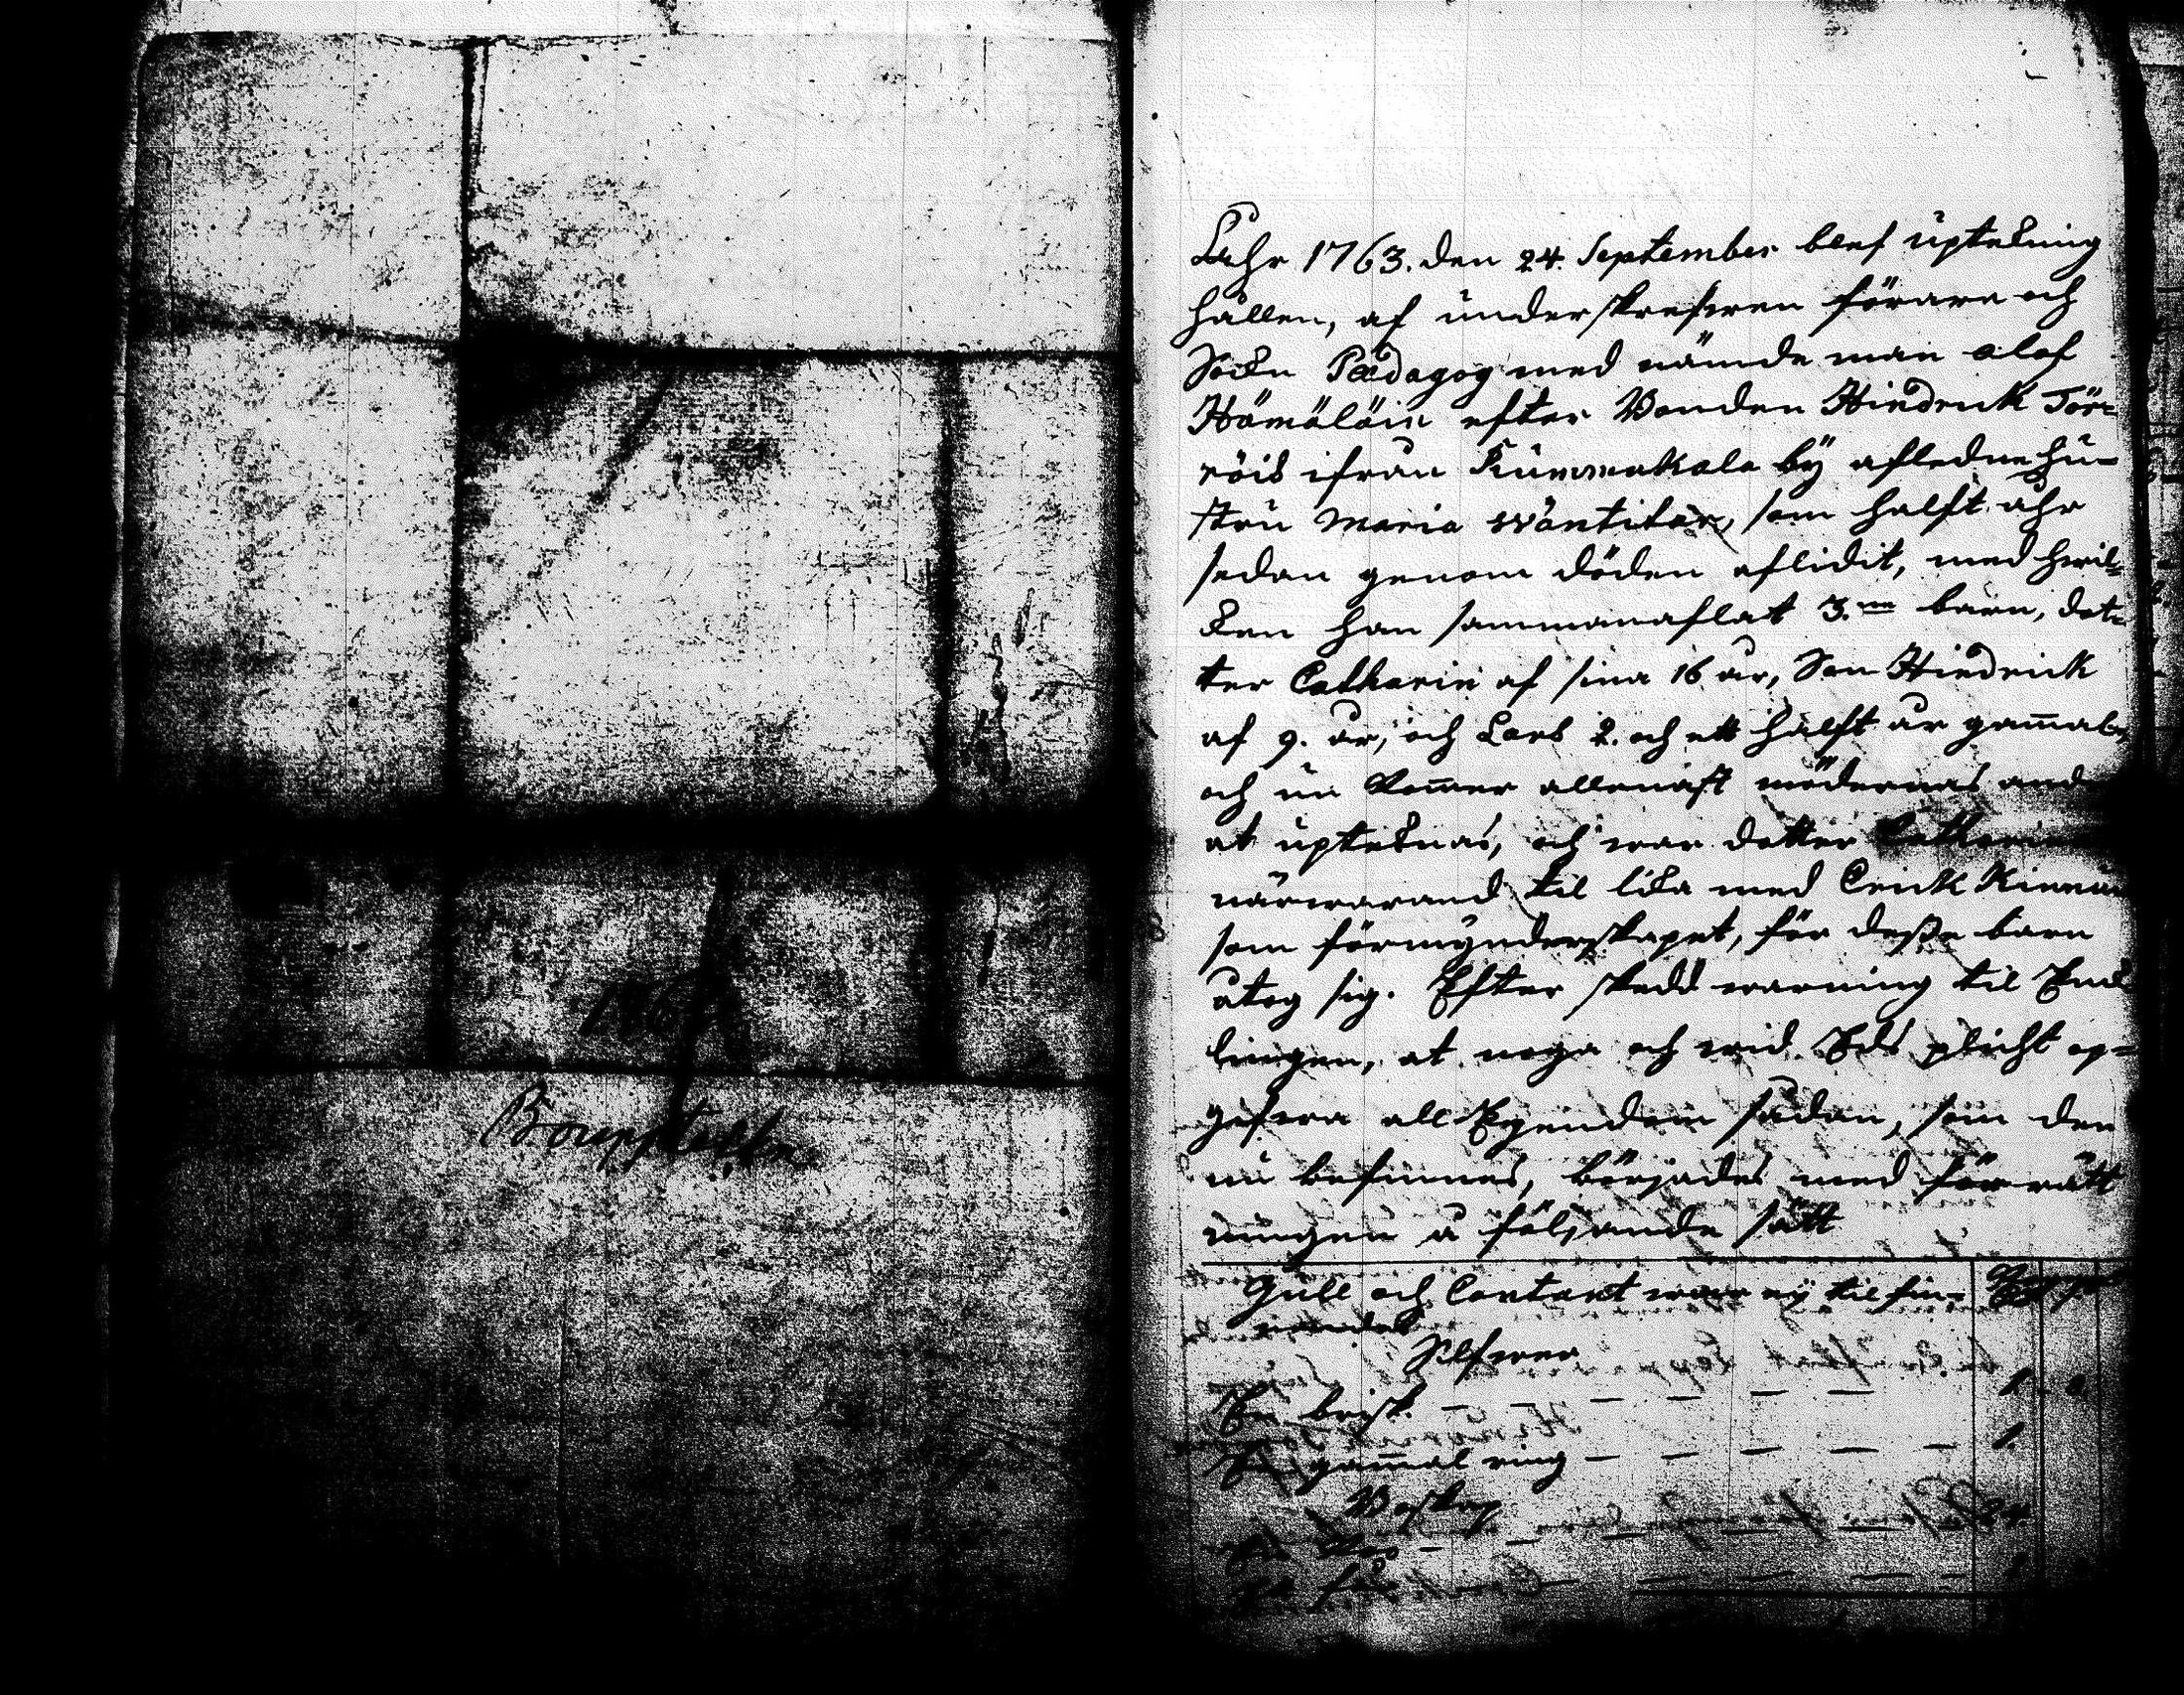 1763
Bouppteckn
Åhr 1763. den 24. September blef upteckning
hållen, af underskrefwen förare och
Sockn Pædagog med nämde man olof
Hämäläin efter Bonden Hindrick Tör=
röis ifrån Kummakala bÿ aflednehu=
stru Maria Wäntitär, som halft åhr
sedan genom döden aflidit, med hwil=
cken han sammanaflat 3.ne barn, dot=
ter Catharin af sina 16 år, Son Hindrick
af 9. år, och Lars 2. och ett halft år gam̄al,
och nu kom̄er allenast mödernas
at uptecknas, och war dotter Catharin
närwarand til lika med Erick
som förmynderskapet, för desse barn
åtog sig. Efter skedd warning til Enck
lingen, at noga och wid Eds plicht op=
gifwa all Egendom sådan, som den
nu befinnes, börjades med förrätt
ningen å följande sätt
Gull och Contant war eÿ til fin=
nandes
Silfwer
En brisk. — — — — — 1
En gam̄al ring — — — — — 1.
Boskap
En Ko — — — — 24
En får — — — —